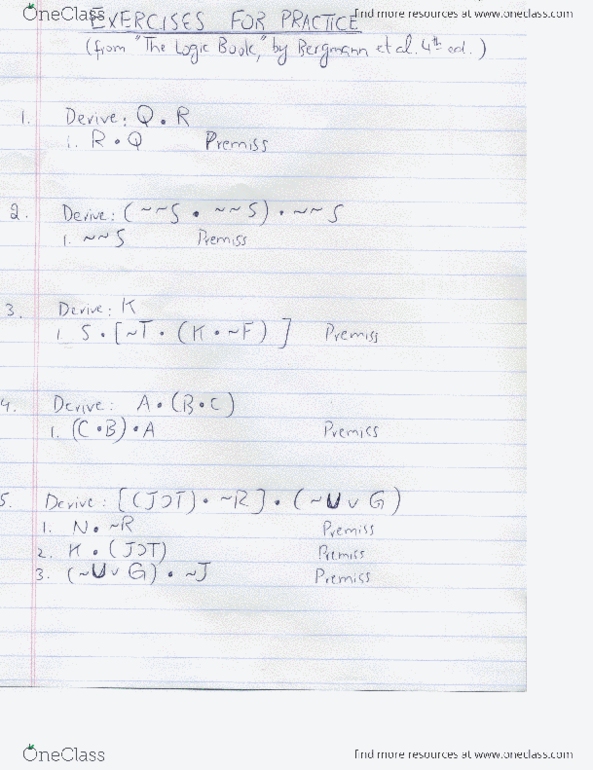 OneClass
find more resources at www.oneclass.com
EXERCISES FOR PRACTICE
(from "The Logic Book," by Bergmann et al. 4th ed.)
1. Derive: Q • R
1. R • Q Premiss
2. Derive: (~~S • ~~S) • ~~S
1. ~~S Premiss
3. Derive: K
1 S • [~T • (K • ~F)] Premiss
4. Derive: A • (B • C)
1. (C • B) • A Premiss
5. Derive: [(J⊃T) • ~R] • (~U v G)
1. N • ~R Premiss
2. K • (J⊃T) Premiss
3. (~U v G) • ~J Premiss
OneClass
find more resources at www.oneclass.com